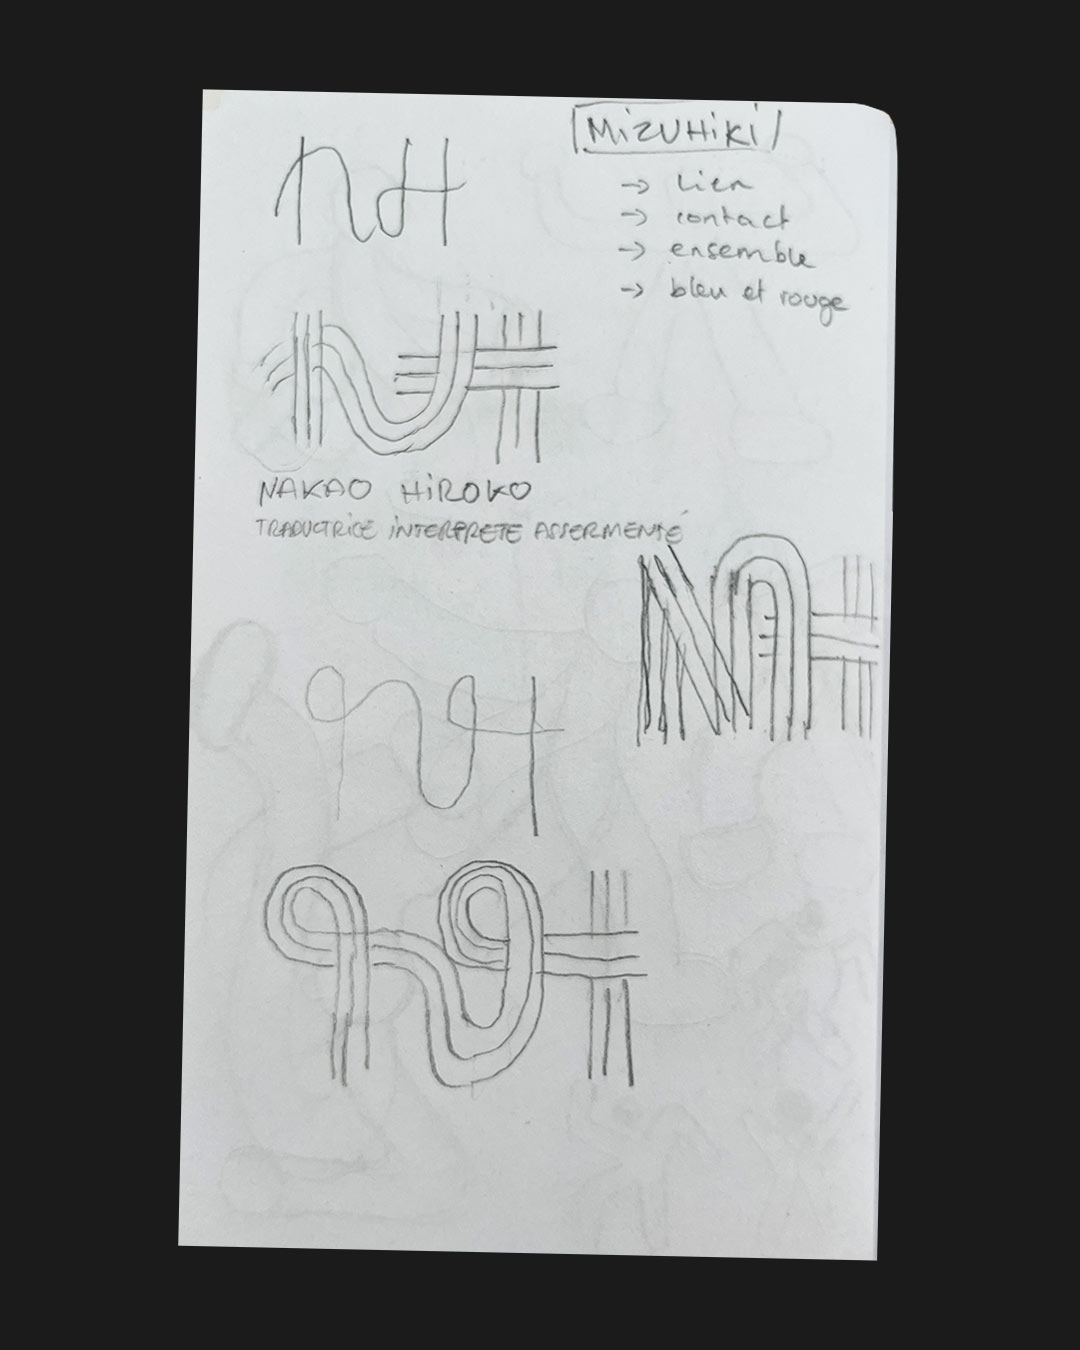 MiZUHiKi
→ Lien
→ contact
→ ensemble
→ bleu et rouge
NH
NH
NAKAO HiROKO
TRADUCTRICE iNTERPRETE ASSERMENTÉ
NH
NH
NH